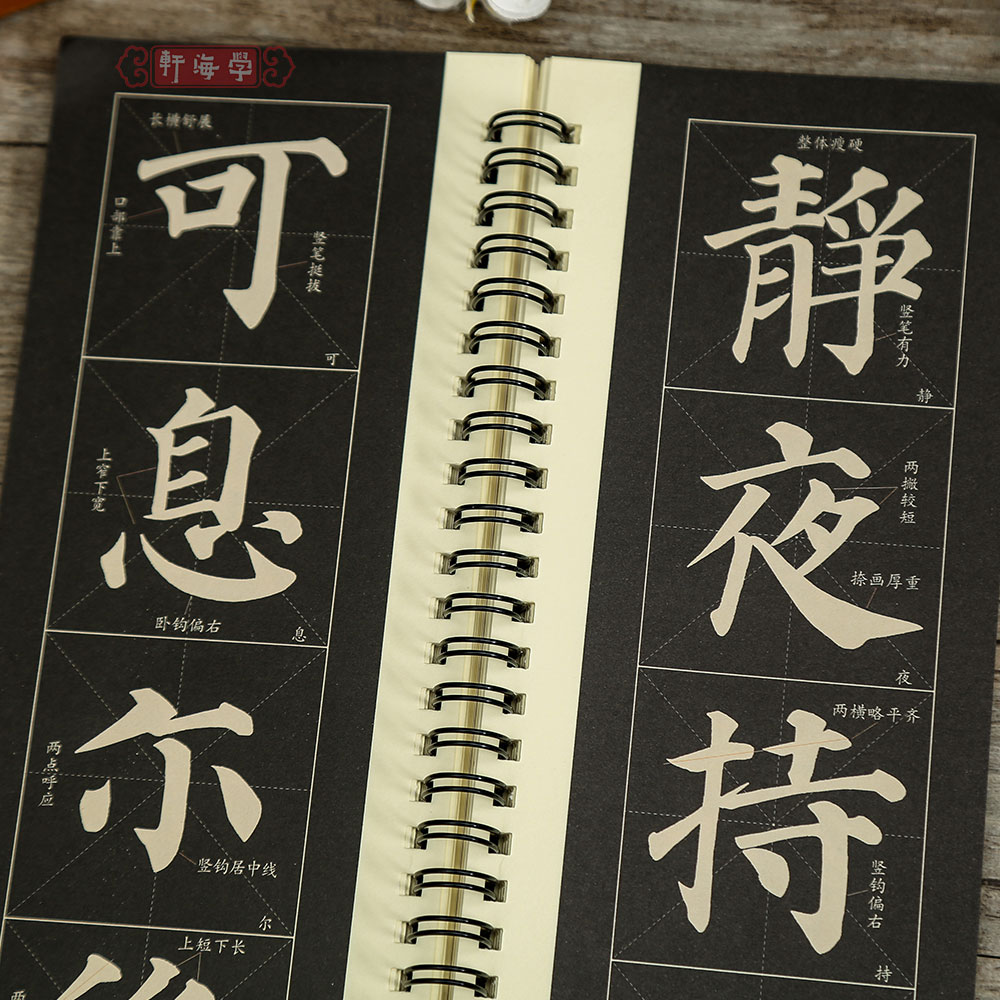 軒海学
长横舒展
可
口部靠上
竖笔挺拔
可
息
上窄下宽
卧钩偏右
息
尔
两点呼应
竖钩居中线
尔
上短下长
两
整体瘦硬
靜
竖笔有力
静
夜
两撇较短
捺画厚重
夜
两横略平齐
持
竖钩偏右
持